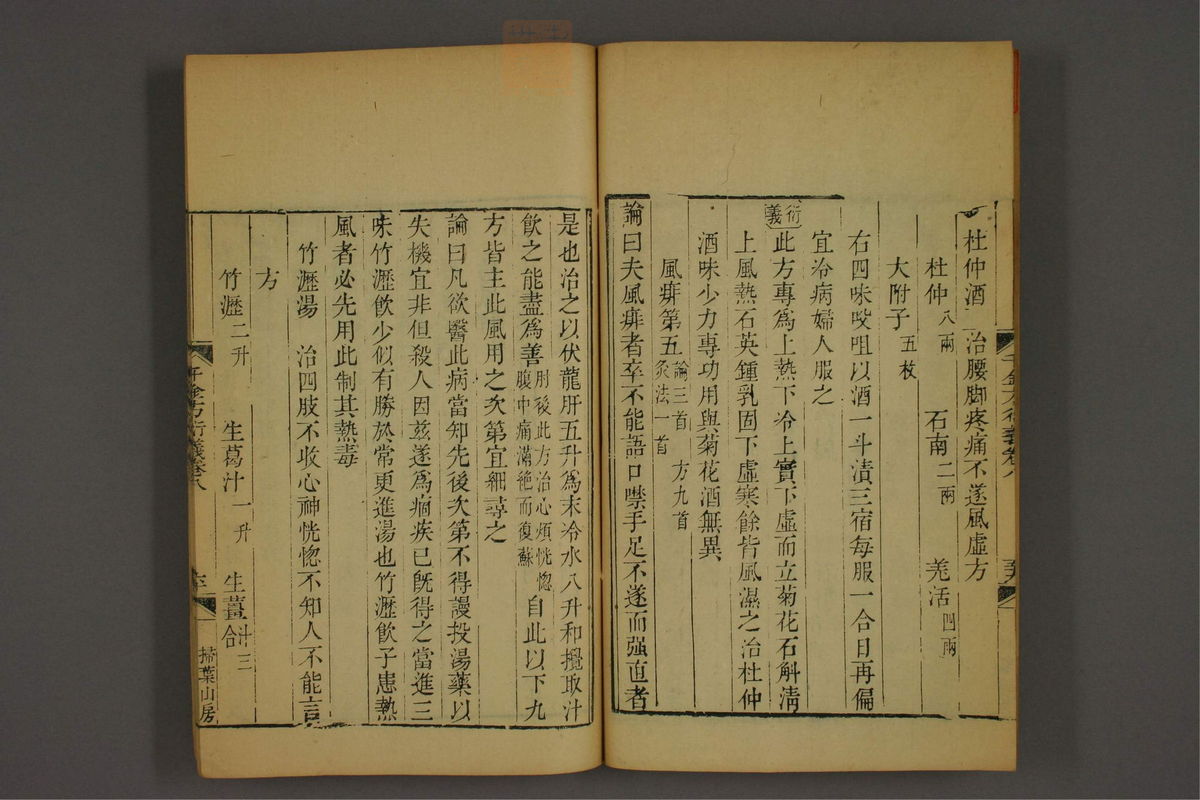 杜仲酒 治腰脚疼痛不遂風虛方
杜仲八兩 石南二兩 羌活四兩
大附子五枚
右四味㕮咀以酒一斗漬三宿每服一合日再偏
宜冷病婦人服之
衍義 此方專爲上熱下冷上實下虛而立菊花石斛淸
上風熱石英鍾乳固下虛寒餘皆風濕之治杜仲
酒味少力專功用與菊花酒無異
風痱第五論三首 方九首 灸法一首
論曰夫風痱者卒不能語口噤手足不遂而强直者
是也治之以伏龍肝五升爲末冷水八升和攪取汁
飮之能盡爲善肘後此方治心煩恍惚腹中痛滿絕而復蘇自此以下九
方皆主此風用之次第宜細尋之
論曰凡欲醫此病當知先後次第不得謾投湯藥以
失機宜非但殺人因玆遂爲痼疾已旣得之當進三
味竹瀝飮少似有勝於常更進湯也竹瀝飮子患熱
風者必先用此制其熱毒
竹瀝湯 治四肢不收心神恍惚不知人不能言
方
竹瀝二升 生葛汁一升 生薑汁三合
千金方衍義卷八
掃葉山房